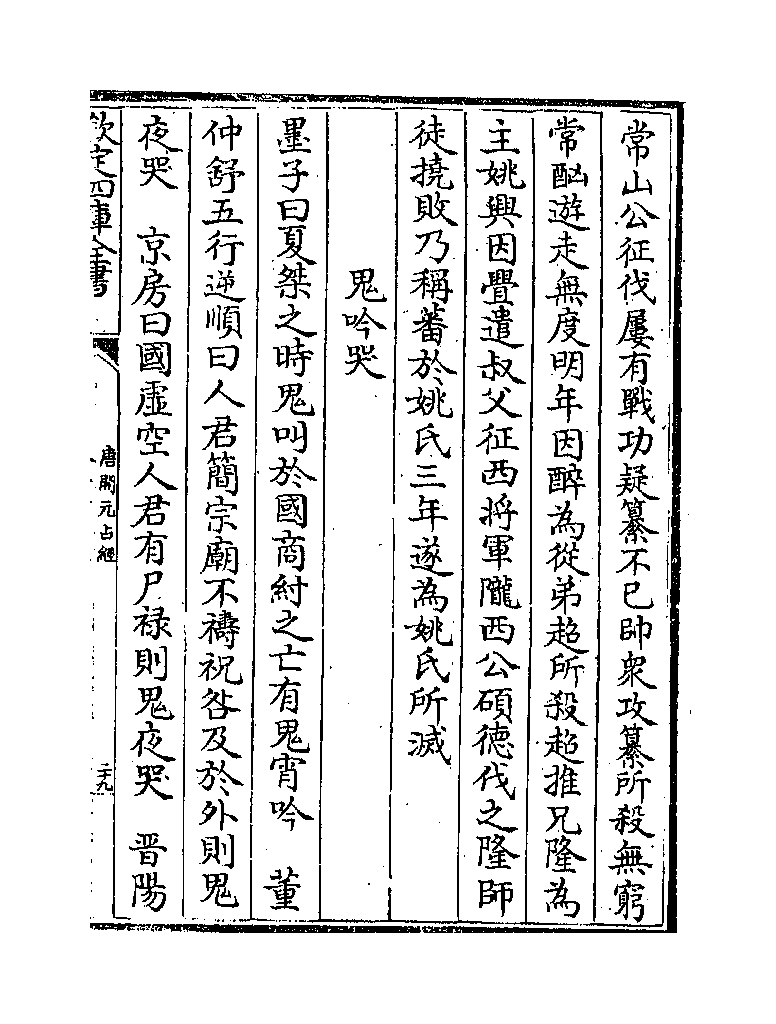 常山公征伐屢有戰功疑纂不已帥衆攻纂所殺無窮
常酗遊走無度明年因醉為從弟超所殺超推兄隆為
主姚興因舋遣叔父征西將軍隴西公碩德伐之隆師
徒撓敗乃稱蕃於姚氏三年遂為姚氏所滅
鬼吟哭
墨子曰夏桀之時鬼叫於國商紂之亡有鬼宵吟　董
仲舒五行逆順曰人君簡宗廟不禱祝咎及於外則鬼
夜哭　京房曰國虛空人君有尸祿則鬼夜哭　晉陽
欽定四庫全書
唐開元占經
二十九